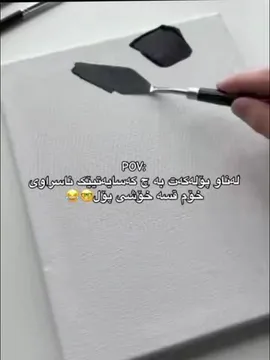 POV:
لەناو پۆلەکەت بە چ کەسایەتیێک ناسراوی
خۆم قسە خۆشی پۆل😷😂